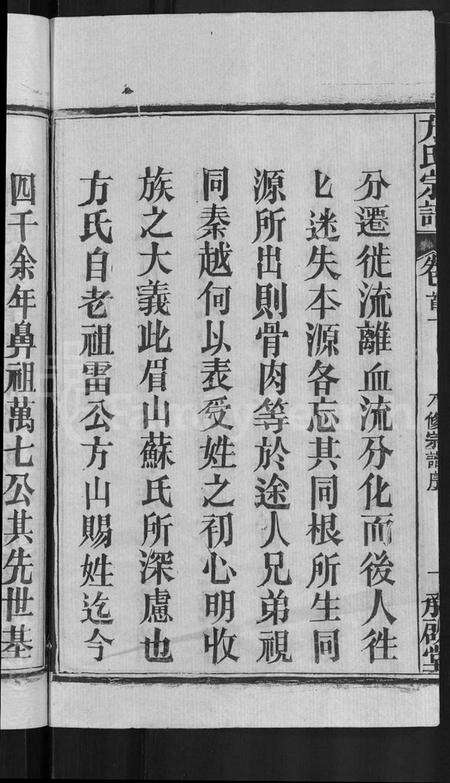 方氏宗譜
卷首一
六修宗譜序
一
承啟堂
分遷徙流離血流分化而後人徃
匕迷失本源各忘其同根所生同
源所出則骨肉等於途人兄弟視
同秦越何以表受姓之初心明收
族之大義此眉山蘇氏所深慮也
方氏自老祖雷公方山賜姓迄今
四千余年鼻祖萬七公其先世基